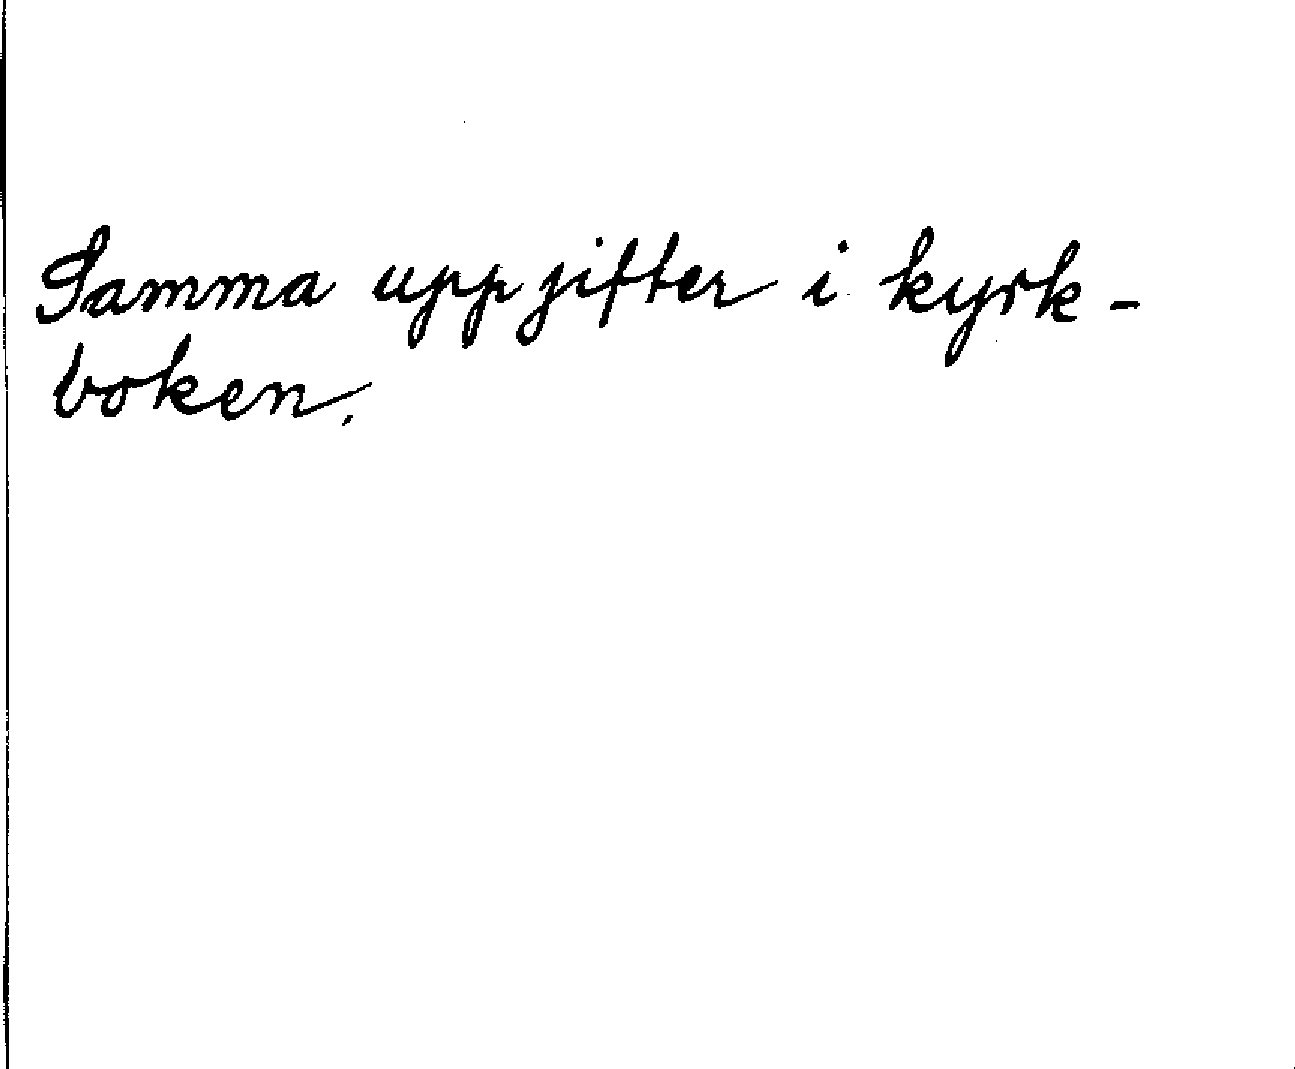 Samma uppgifter i kyrk-
boken.